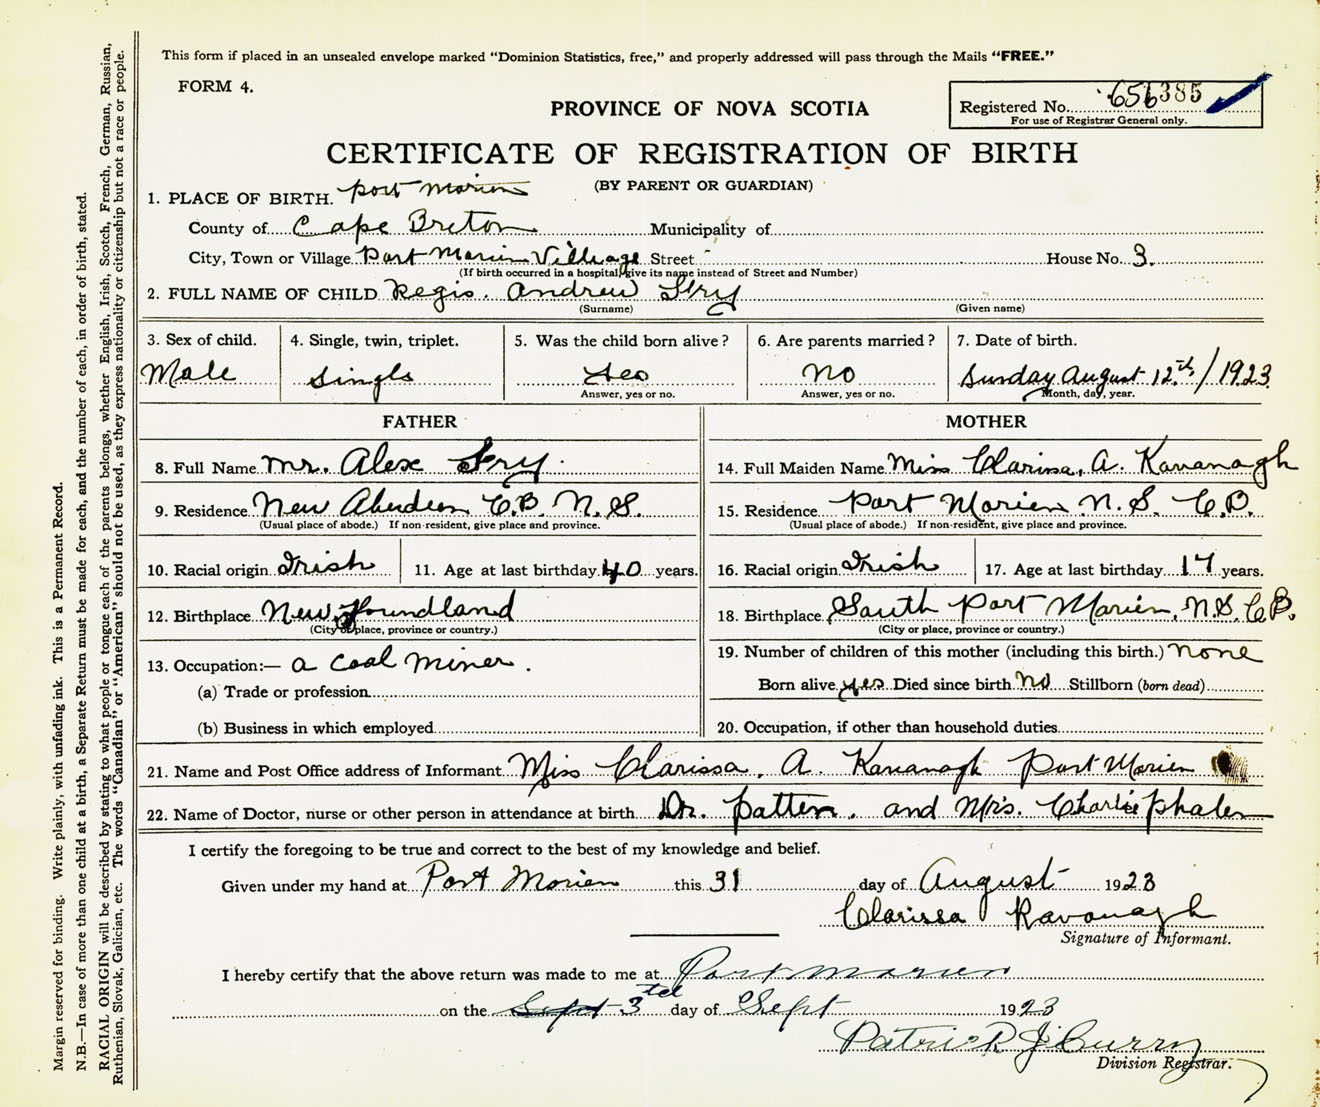 This form if placed in an unsealed envelope marked “Dominion Statistics, free,” and properly addressed will pass through the Mails “FREE.”
FORM 4.
Registered No. 656385
For use of Registrar General only.
PROVINCE OF NOVA SCOTIA
CERTIFICATE OF REGISTRATION OF BIRTH
(BY PARENT OR GUARDIAN)
1. PLACE OF BIRTH. Port Morien
County of Cape Breton Municipality of
City, Town or Village Port Morien Village Street House No. 3.
(If birth occurred in a hospital, give its name instead of Street and Number)
2. FULL NAME OF CHILD Regis. Andrew Fry
(Surname) (Given name)
3. Sex of child. 4. Single, twin, triplet. 5. Was the child born alive? 6. Are parents married? 7. Date of birth.
Male Single Yes No Sunday August 12th/1923
Answer, yes or no. Answer, yes or no. Month, day, year.
FATHER MOTHER
8. Full Name Mr. Alex Fry. 14. Full Maiden Name Miss Clarissa, A. Kavanagh
9. Residence New Aberdeen C.B. N.S. 15. Residence Port Morien N.S. C.B.
(Usual place of abode.) If non-resident, give place and province. (Usual place of abode.) If non-resident, give place and province.
10. Racial origin Irish 11. Age at last birthday 40 years. 16. Racial origin Irish 17. Age at last birthday 17 years.
12. Birthplace New Foundland 18. Birthplace South Port Morien, N.S. C.B.
(City or place, province or country.) (City or place, province or country.)
13. Occupation:— a coal miner. 19. Number of children of this mother (including this birth.) none
(a) Trade or profession Born alive yes Died since birth no Stillborn (born dead)
(b) Business in which employed 20. Occupation, if other than household duties
21. Name and Post Office address of Informant Miss Clarissa, A. Kavanagh Port Morien
22. Name of Doctor, nurse or other person in attendance at birth Dr. Patten, and Mrs. Charlie Phalen
I certify the foregoing to be true and correct to the best of my knowledge and belief.
Given under my hand at Port Morien this 31 day of August 1923
Clarissa Kavanagh
Signature of Informant.
I hereby certify that the above return was made to me at Port Morien
on the Sept 3 day of Sept 1923
Patrick J Curry
Division Registrar.
Margin reserved for binding. Write plainly, with unfading ink. This is a Permanent Record.
N.B.—In case of more than one child at a birth, a Separate Return must be made for each, and the number of each, in order of birth, stated.
RACIAL ORIGIN will be described by stating to what people or tongue each of the parents belongs, whether English, Irish, Scotch, French, German, Russian,
Ruthenian, Slovak, Galician, etc. The words “Canadian” or “American” should not be used, as they express nationality or citizenship but not a race or people.